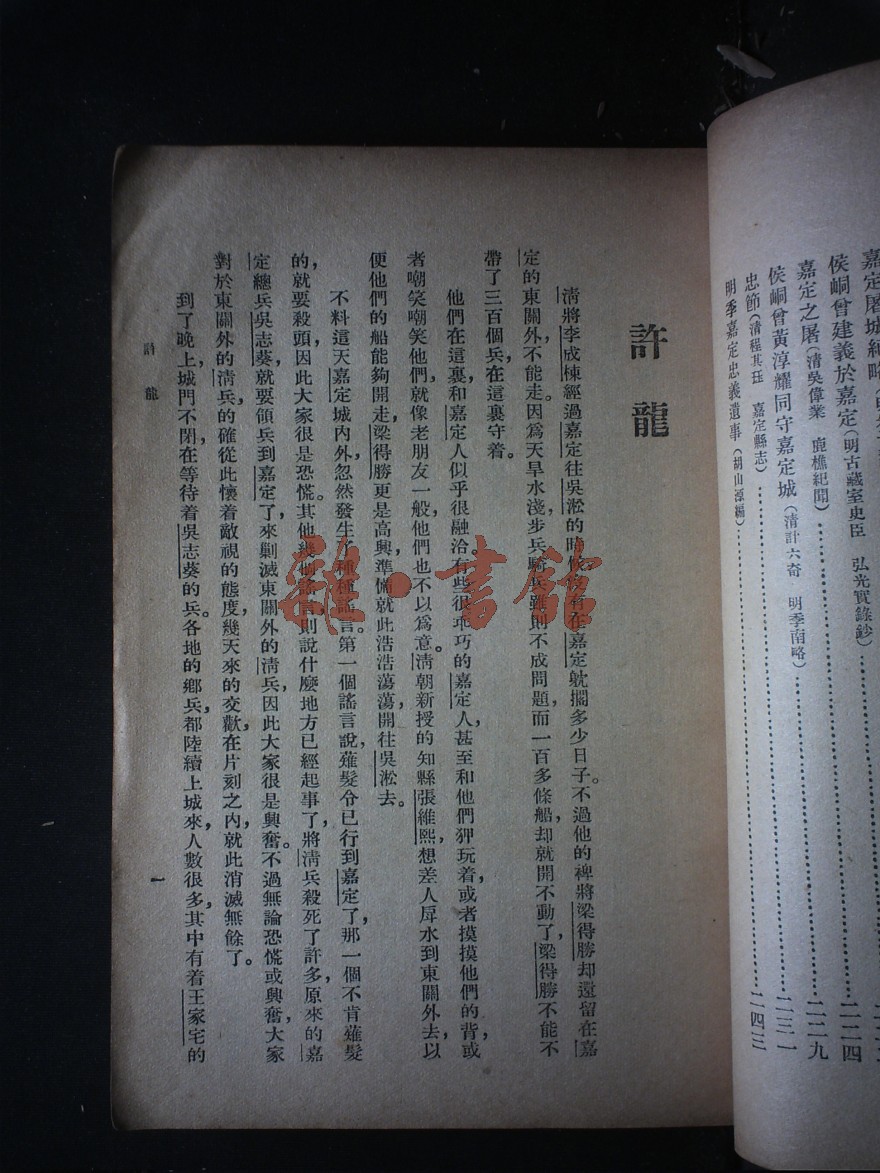 嘉定屠城紀略
侯峒曾建義於嘉定(明古藏室史臣 弘光實錄鈔)……二二四
嘉定之屠(清吳偉業 鹿樵紀聞)……二二九
侯峒曾黃淳耀同守嘉定城(清計六奇 明季南略)……二三一
忠節(清程其珏 嘉定縣志)……
明季嘉定忠義遺事(胡山源編)……二四三
許龍
清將李成棟經過嘉定往吳淞的時候沒有在嘉定躭擱多少日子。不過他的裨將梁得勝却還留在嘉
定的東關外不能走。因爲天旱水淺步兵騎兵雖則不成問題,而一百多條船,却就開不動了,梁得勝不能不
帶了三百個兵在這裏守着。
他們在這裏,和嘉定人似乎很融洽。有些很乖巧的嘉定人,甚至和他們狎玩着,或者摸摸他們的背,或
者嘲笑嘲笑他們,就像老朋友一般,他們也不以爲意。清朝新授的知縣張維熙,想差人戽水到東關外去,以
便他們的船能夠開走,梁得勝更是高興,準備就此浩浩蕩蕩,開往吳淞去。
不料這天嘉定城內外,忽然發生了種種謠言。第一個謠言說,薙髮令已行到嘉定了,那一個不肯薙髮
的,就要殺頭,因此大家很是恐慌。其他幾個謠言,則說什麽地方已經起事了,將清兵殺死了許多,原來的嘉
定總兵吳志葵,就要領兵到嘉定了,來剿滅東關外的清兵,因此大家很是興奮。不過無論恐慌或興奮,大家
對於東關外的清兵,的確從此懷着敵視的態度,幾天來的交歡,在片刻之內,就此消滅無餘了。
到了晚上,城門不閉,在等待着吳志葵的兵。各地的鄉兵,都陸續上城來,人數很多,其中有着王家宅的
許龍
一
雜·書館